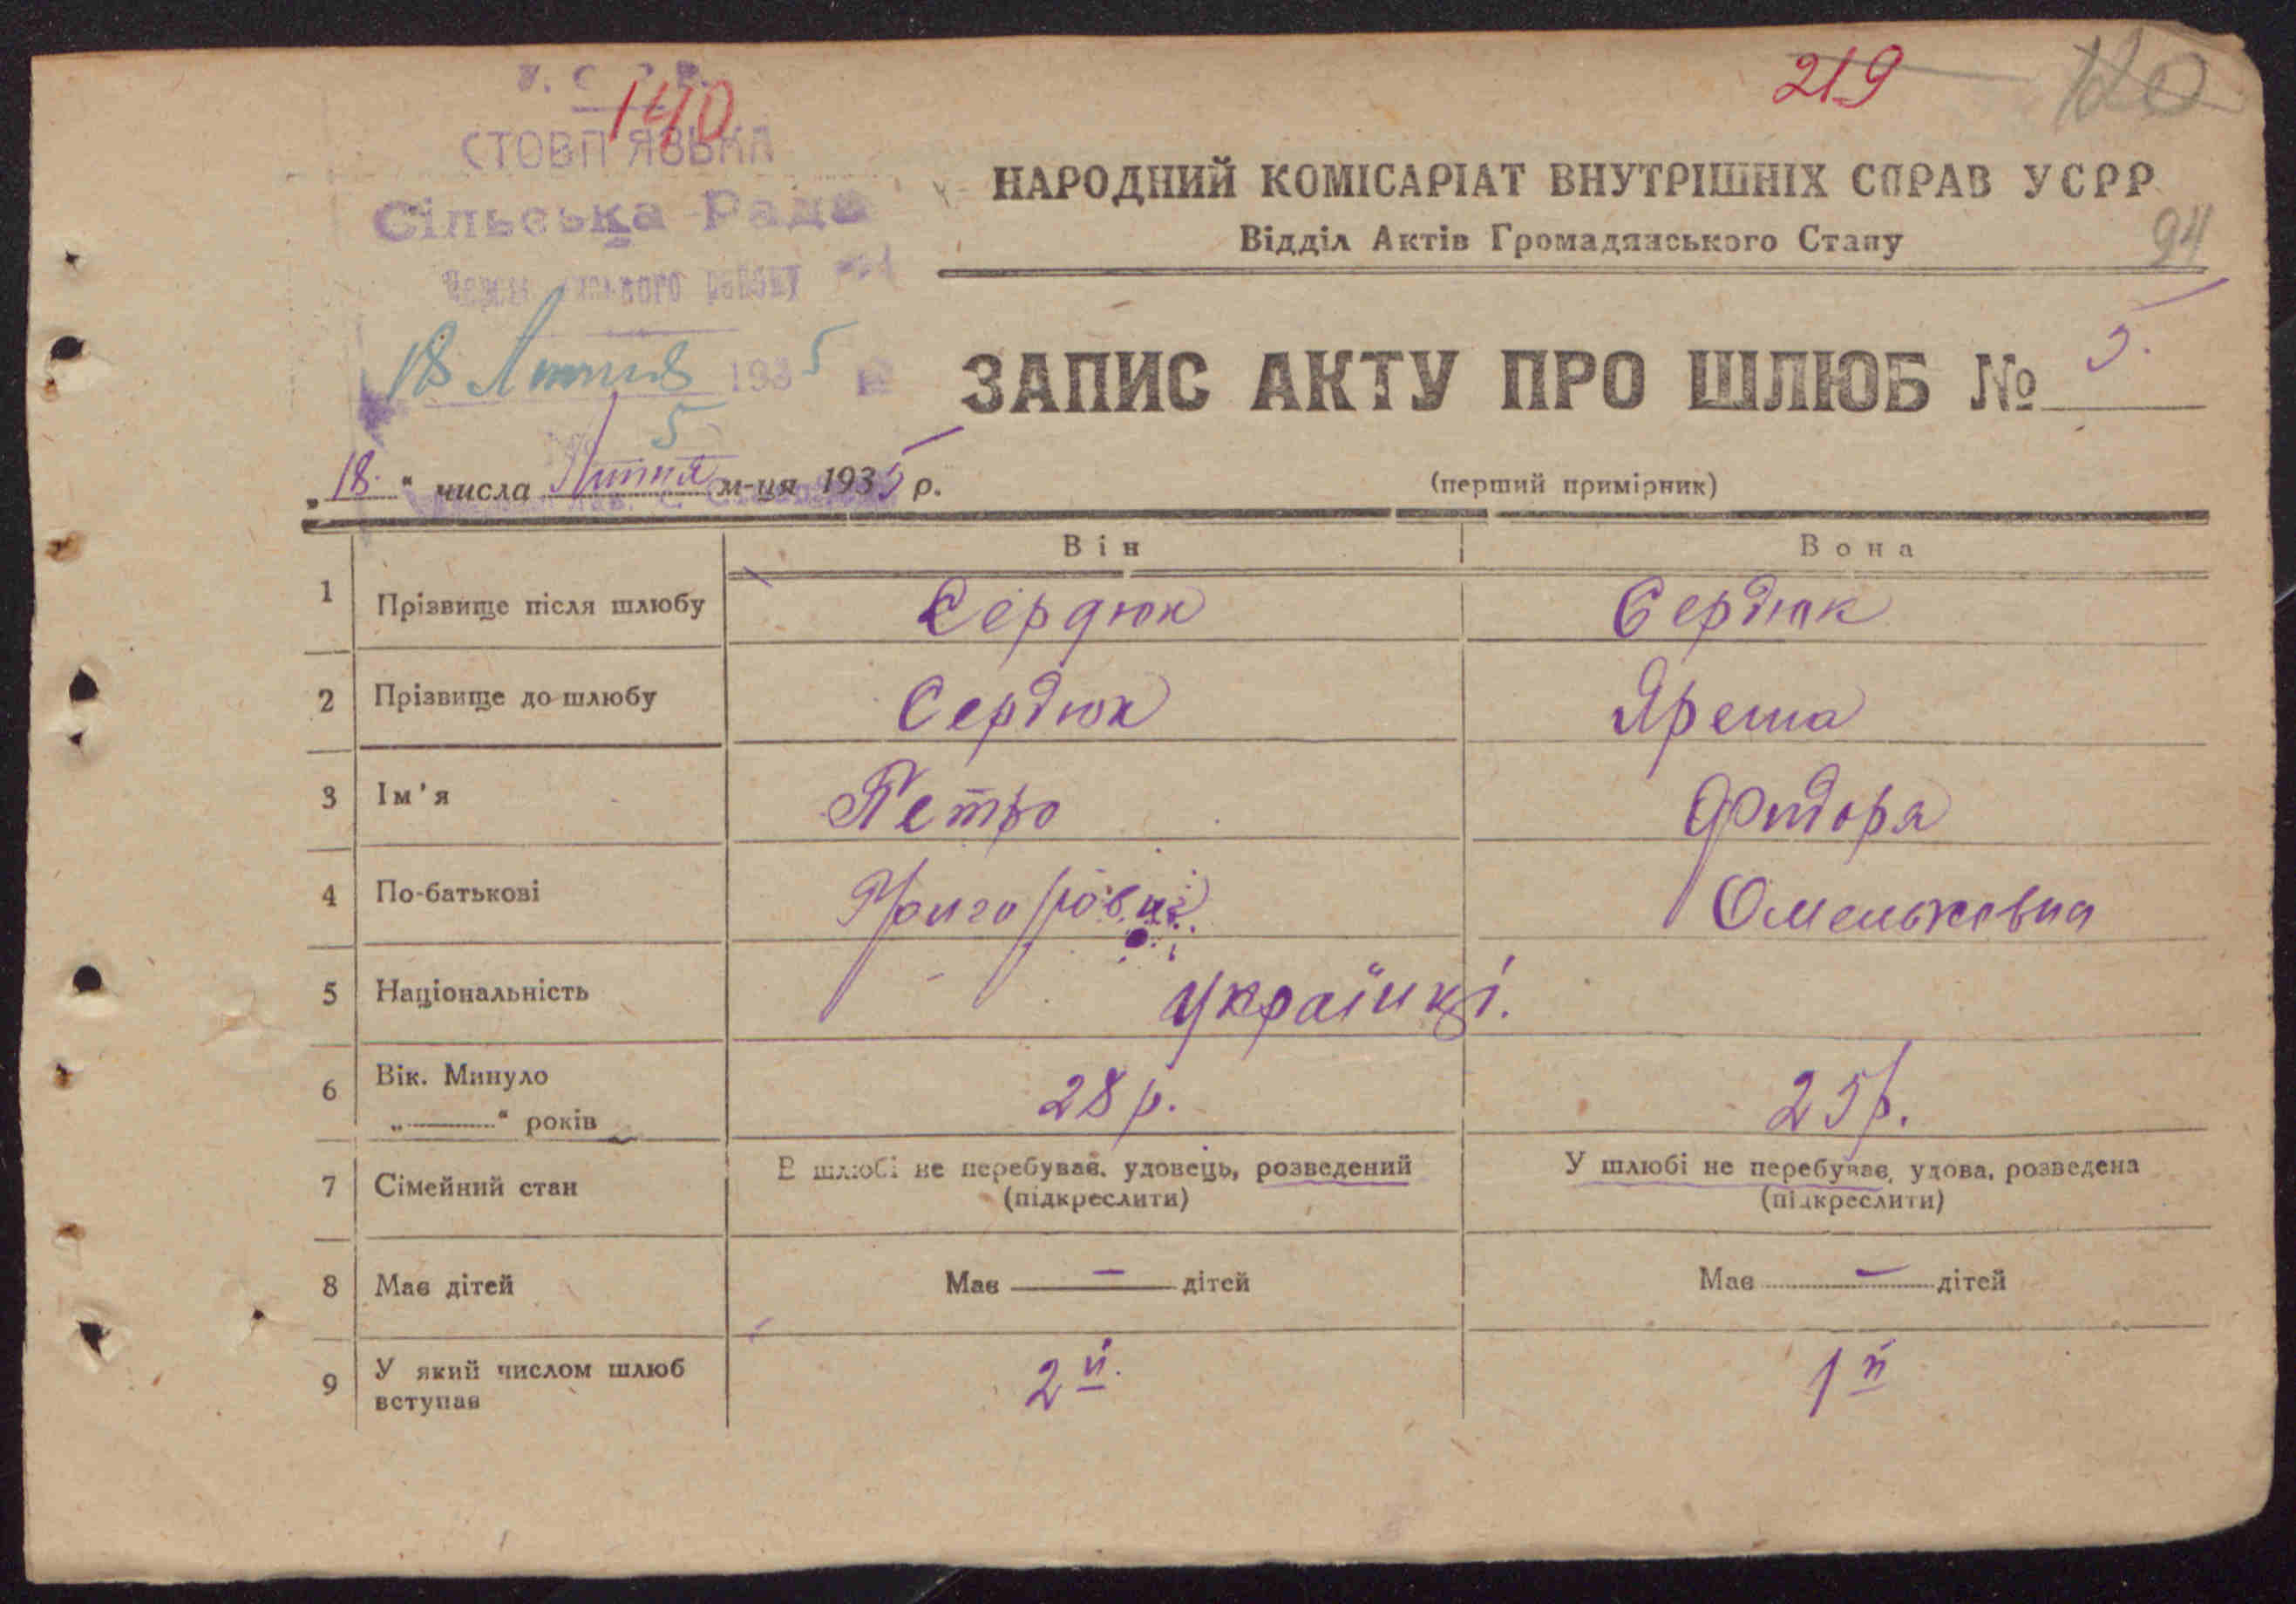 140
219
120
СТОВП'ЯЗЬКА
Сільська Рада
району
НАРОДНИЙ КОМІСАРІАТ ВНУТРІШНІХ СПРАВ УСРР
Відділ Актів Громадянського Стану
94
18 Липня 1935
5
ЗАПИС АКТУ ПРО ШЛЮБ № 5.
„18.“ числа Липня м-ця 1935 р.
(перший примірник)
Він Вона
1 Прізвище після шлюбу Сердюк Сердюк
2 Прізвище до шлюбу Сердюк Ярема
3 Ім'я Петро
4 По-батькові Григорович Омельковна
5 Національність Українці.
6 Вік. Минуло „ “ років 28 р. 25 р.
7 Сімейний стан В шлюбі не перебував, удовець, розведений (підкреслити) У шлюбі не перебував, удова, розведена (підкреслити)
8 Має дітей Має — дітей Має — дітей
9 У який числом шлюб вступав 2й. 1й